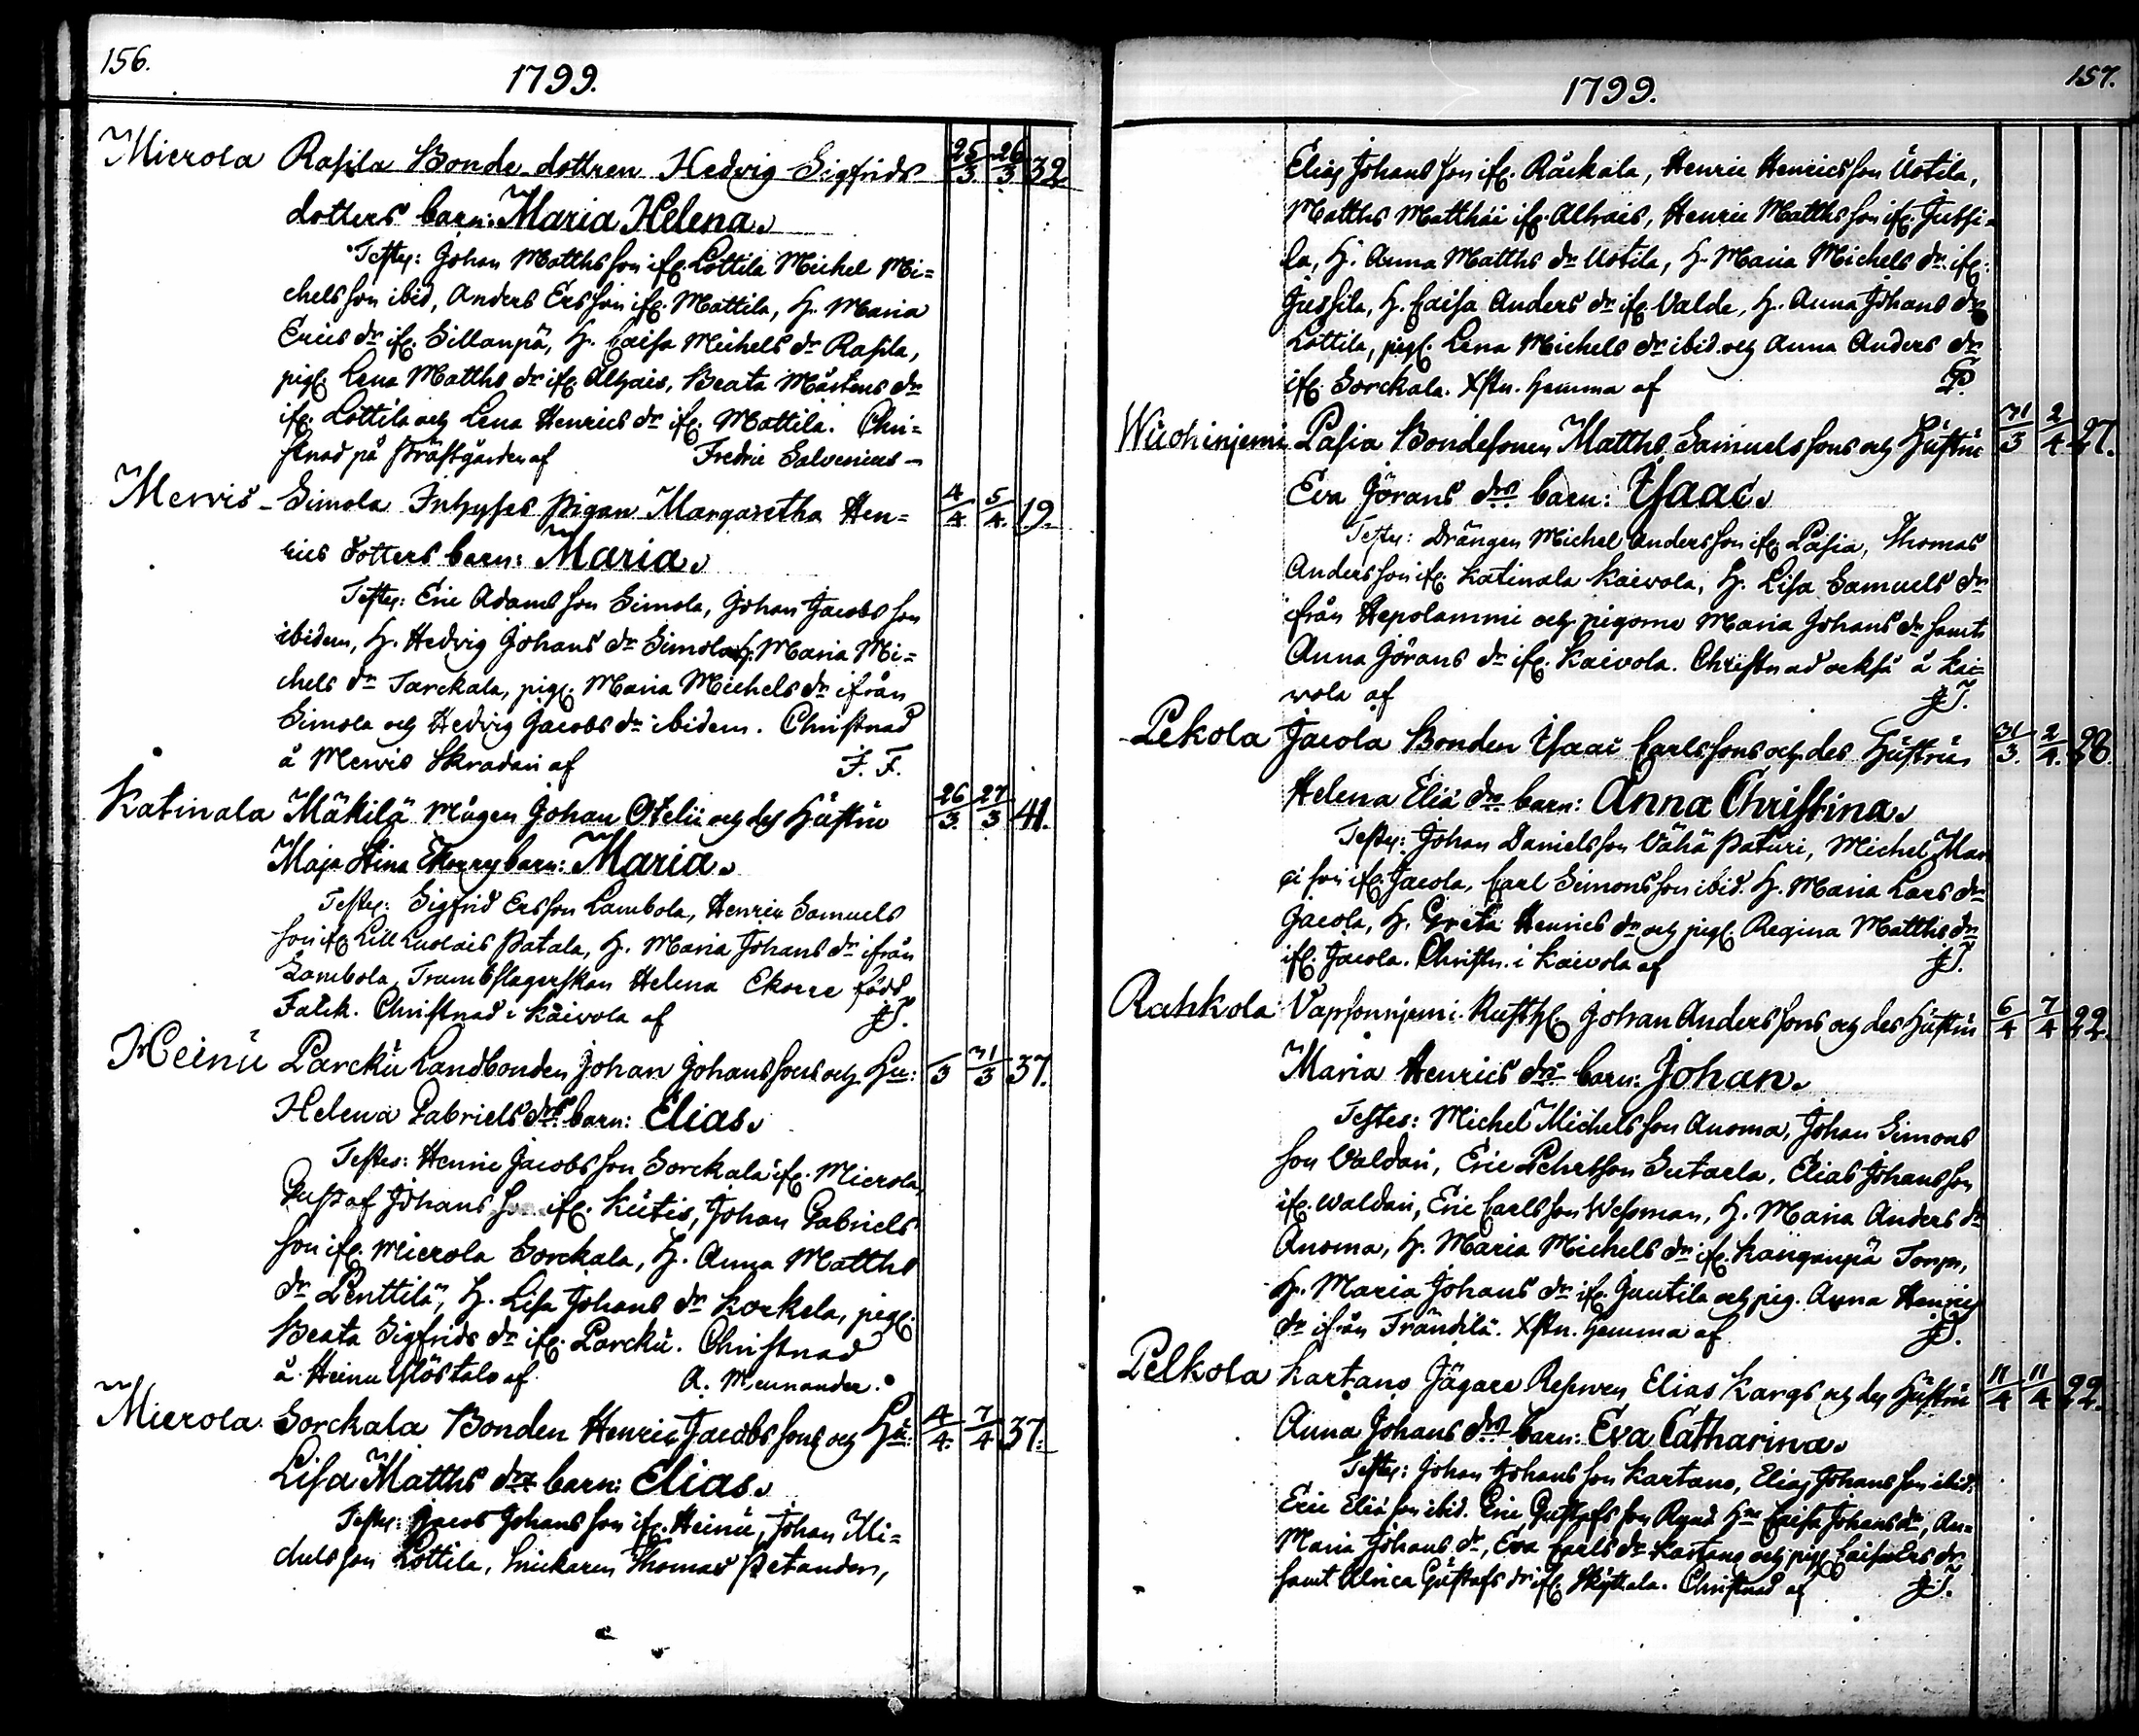 156.
1799.
Mierola Rasila Bonde dottren Hedvig Sigfrids 25/3 26/3 32
dotters barn: Maria Helena.
Testes: Johan Matthsson ifr. Lottila Michel Mi=
chelsson ibid, Anders Ersson ifr. Mattila, H. Maria
Erics dr ifr. Sillanpä, H. Caisa Michels dr Rasila,
pig. Lena Matths dr ifr. Alhais, Beata Mårtens dr
ifr. Lottila och Lena Henrics dr ifr. Mattila. Chri=
stnad på Prästgården af Fredric Salvenius
Mervis Simola Inhyses Pigan Margaretha Hen= 4/4 5/4 19.
rics dotters barn: Maria.
Testes: Eric Adamsson Simola, Johan Jacobsson
ibidem, H. Hedvig Johans dr Simola, H. Maria Mi=
chels dr Tarckala, pig. Maria Michels dr ifrån
Simola och Hedvig Jacobs dr ibidem. Christnad
å Mervis Skradari af F. F.
Katinala Mäkilä Mågen Johan Otelii och des Hustru 26/3 27/3 41.
Maja Stina Ekorres barn: Maria.
Testes: Sigfrid Ersson Lambola, Henric Samuels
son ifr. Lill Luolais Patala, H. Maria Johans dr ifrån
Lambola, Trumbslagerskan Helena Ekorre född
Falck. Christnad i Kaivola af JT.
Heinu Parcku Landbonden Johan Johanssons och Hu: /3 31/3 37.
Helena Gabriels drs barn: Elias.
Testes: Henric Jacobsson Sorckala ifr. Mierola,
Gustaf Johansson ifr. Kutis, Johan Gabriels
son ifr. Mierola Sorckala, H. Anna Matths
dr Penttilä, H. Lisa Johans dr Korkela, pig.
Beata Sigfrids dr ifr. Parcku. Christnad
å Heinu Ylöstalo af A. Mennander.
Mierola Sorckala Bonden Henric Jacobssons och Hu: 4/4 7/4 37.
Lisa Matths drs barn: Elias.
Testes: Jacob Johansson ifr. Heinu, Johan Mi=
chelsson Lottila, Snickaren Thomas Petander,
157.
1799.
Elias Johansson ifr. Räckala, Henric Henricsson Ustila,
Matths Matthäi ifr. Alhais, Henric Matthsson ifr. Jussi=
la, H. Anna Matths dr Ustila, H. Maria Michels dr ifr.
Jussila, H. Caisa Anders dr ifr. Valde, H. Anna Johans dr
Lottila, pig. Lena Michels dr ibid. och Anna Anders dr
ifr. Sorckala. Xstn. hemma af
Wuohiniemi Pasia Bondesonen Matths Samuelssons och Hustru 31/3 2/4 27.
Eva Görans drs barn: Isaac.
Testes: Drängen Michel Andersson ifr. Pasia, Thomas
Andersson ifr. Katinala Kaivola, H. Lisa Samuels dr
ifrån Hepolammi och pigorne Maria Johans dr samt
Anna Görans dr ifr. Kaivola. Christnad också å Kai=
vola af JT.
Pekola Jacola Bonden Isaac Carlssons och des Hustrus 31/3 2/4 28.
Helena Eliä drs barn: Anna Christina.
Testes: Johan Danielsson Vähä Paturi, Michel Mar
ci son ifr. Jacola, Carl Simonsson ibid. H. Maria Lars dr
Jacola, H. Greta Henrics dr och pig. Regina Matths dr
ifr. Jacola. Christn. i Kaivola af JT.
Rahkola Vapsonniemi Rusth. Johan Anderssons och des Hustru 6/4 7/4 22.
Maria Henrics drs barn: Johan.
Testes: Michel Michelsson Anoma, Johan Simons
son Valdari, Eric Pehrsson Sutarla, Elias Johansson
ifr. Waldari, Eric Carlsson Wessman, H. Maria Anders dr
Anoma, H. Maria Michels dr ifr. Kanganpä Torp,
H. Maria Johans dr ifr. Juutila och pig. Anna Henrics
dr ifrån Frändilä. Xstn. hemma af JT.
Pelkola Kartano Jägare Elias Kargs och des Hustru 11/4 11/4 22.
Anna Johans drs barn: Eva Catharina.
Testes: Johan Johansson Kartano, Elias Johansson ibid.
Eric Eliä son ibid. Eric Gustafsson Hr Caisa Johans dr, An=
Maria Johans dr, Eva Carls dr Kartano och pig. Caisa Ers dr
samt Ulrica Gustafs dr ifr. Skyttala. Christnad af JT.